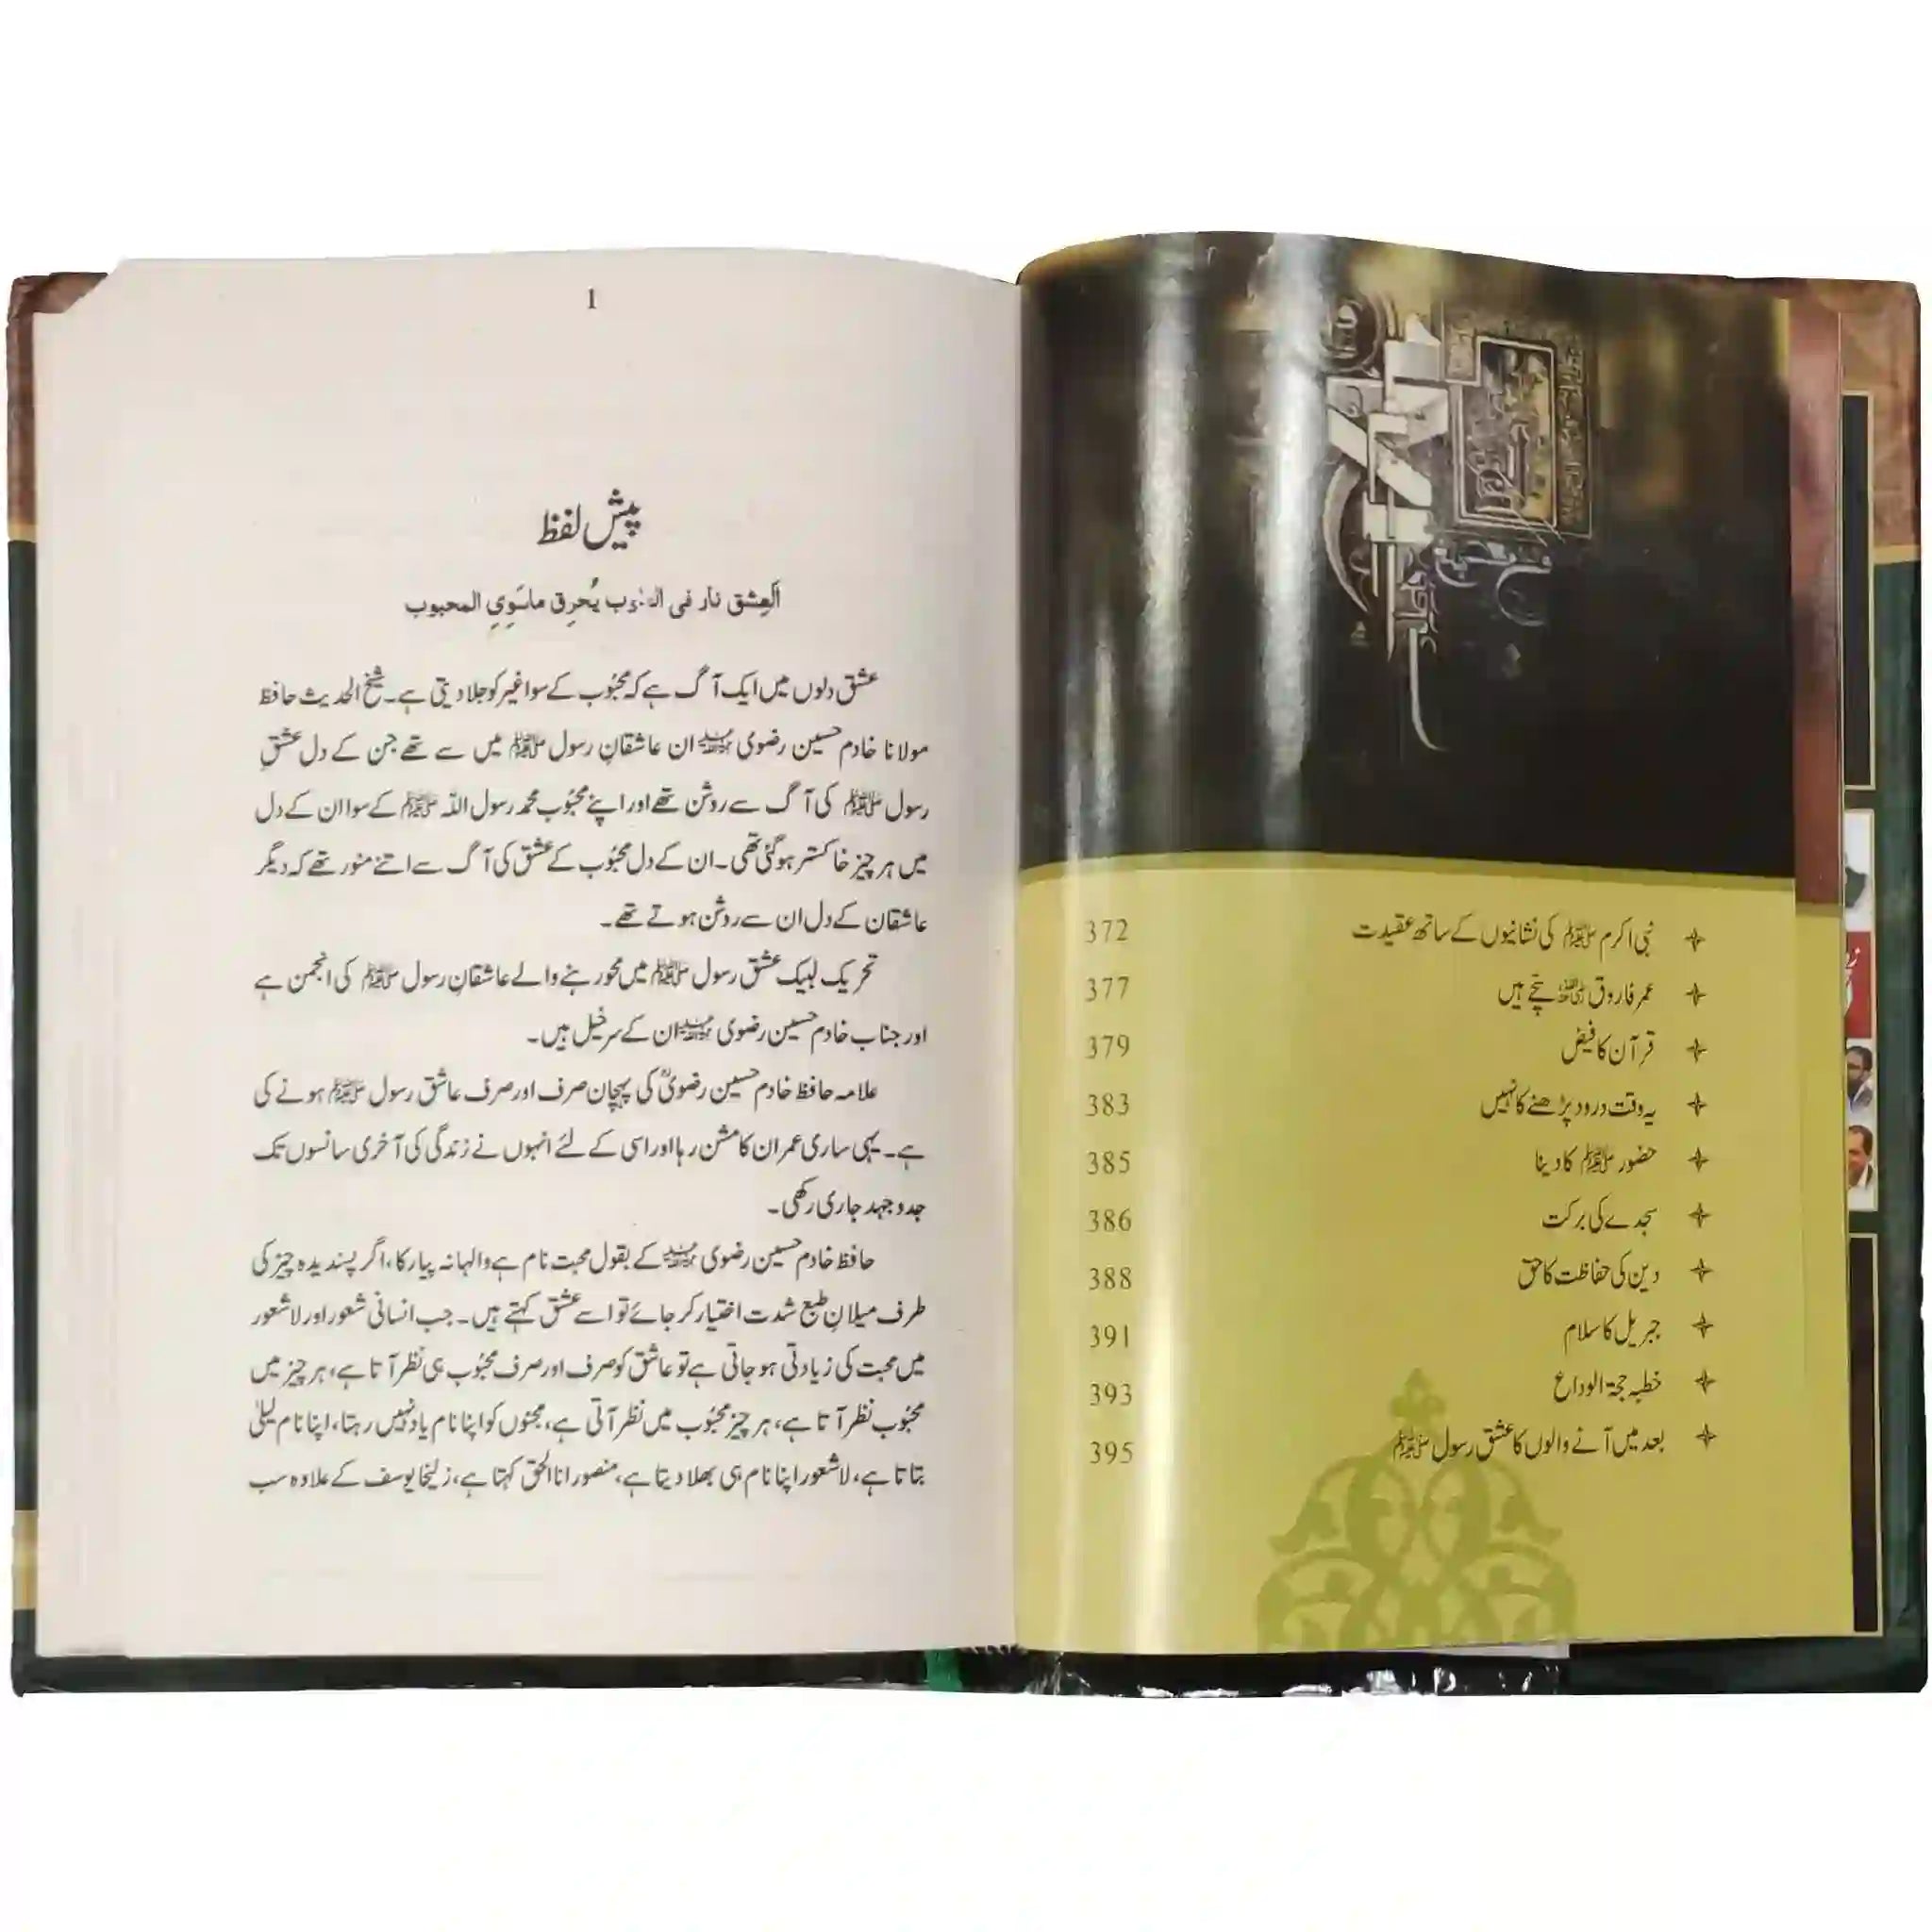 نبی اکرم ﷺ کی نشانیوں کے ساتھ عقیدت 372
عمر فاروق رضی اللہ عنہ سچے ہیں 377
قرآن کا فیض 379
یہ وقت درود پڑھنے کا نہیں 383
حضور ﷺ کا دینا 385
سجدے کی برکت 386
دین کی حفاظت کا حق 388
جبریل کا سلام 391
خطبہ حجۃ الوداع 393
بعد میں آنے والوں کا عشق رسول ﷺ 395
1
پیش لفظ
العِشق نار فی یُحرِق ماسَوِیِ المحبوب
عشق دلوں میں ایک آگ ہے کہ محبُوب کے سوا غیر کو جلا دیتی ہے۔ شیخ الحدیث حافظ
مولانا خادم حسین رضوی ؒ ان عاشقانِ رسول ﷺ میں سے تھے جن کے دل عشقِ
رسول ﷺ کی آگ سے روشن تھے اور اپنے محبُوب محمد رسول اللہ ﷺ کے سوا ان کے دل
میں ہر چیز خاکستر ہو گئی تھی۔ ان کے دل محبُوب کے عشق کی آگ سے اتنے منور تھے کہ دیگر
عاشقان کے دل ان سے روشن ہوتے تھے۔
تحریک لبیک عشق رسول ﷺ میں محو رہنے والے عاشقانِ رسول ﷺ کی انجمن ہے
اور جناب خادم حسین رضوی ؒ ان کے سرخیل ہیں۔
علامہ حافظ خادم حسین رضویؒ کی پہچان صرف اور صرف عاشق رسول ﷺ ہونے کی
ہے۔ یہی ساری عمر ان کا مشن رہا اور اسی کے لئے انہوں نے زندگی کی آخری سانسوں تک
جدوجہد جاری رکھی۔
حافظ خادم حسین رضوی ؒ کے بقول محبت نام ہے والہانہ پیار کا، اگر پسندیدہ چیز کی
طرف میلانِ طبع شدت اختیار کر جائے تو اسے عشق کہتے ہیں۔ جب انسانی شعور اور لا شعور
میں محبت کی زیادتی ہو جاتی ہے تو عاشق کو صرف اور صرف محبُوب ہی نظر آتا ہے، ہر چیز میں
محبُوب نظر آتا ہے، ہر چیز محبُوب میں نظر آتی ہے، مجنُوں کو اپنا نام یاد نہیں رہتا، اپنا نام لیلیٰ
بتاتا ہے، لا شعور اپنا نام ہی بھلا دیتا ہے، منصور انا الحق کہتا ہے، زلیخا یوسف کے علاوہ سب